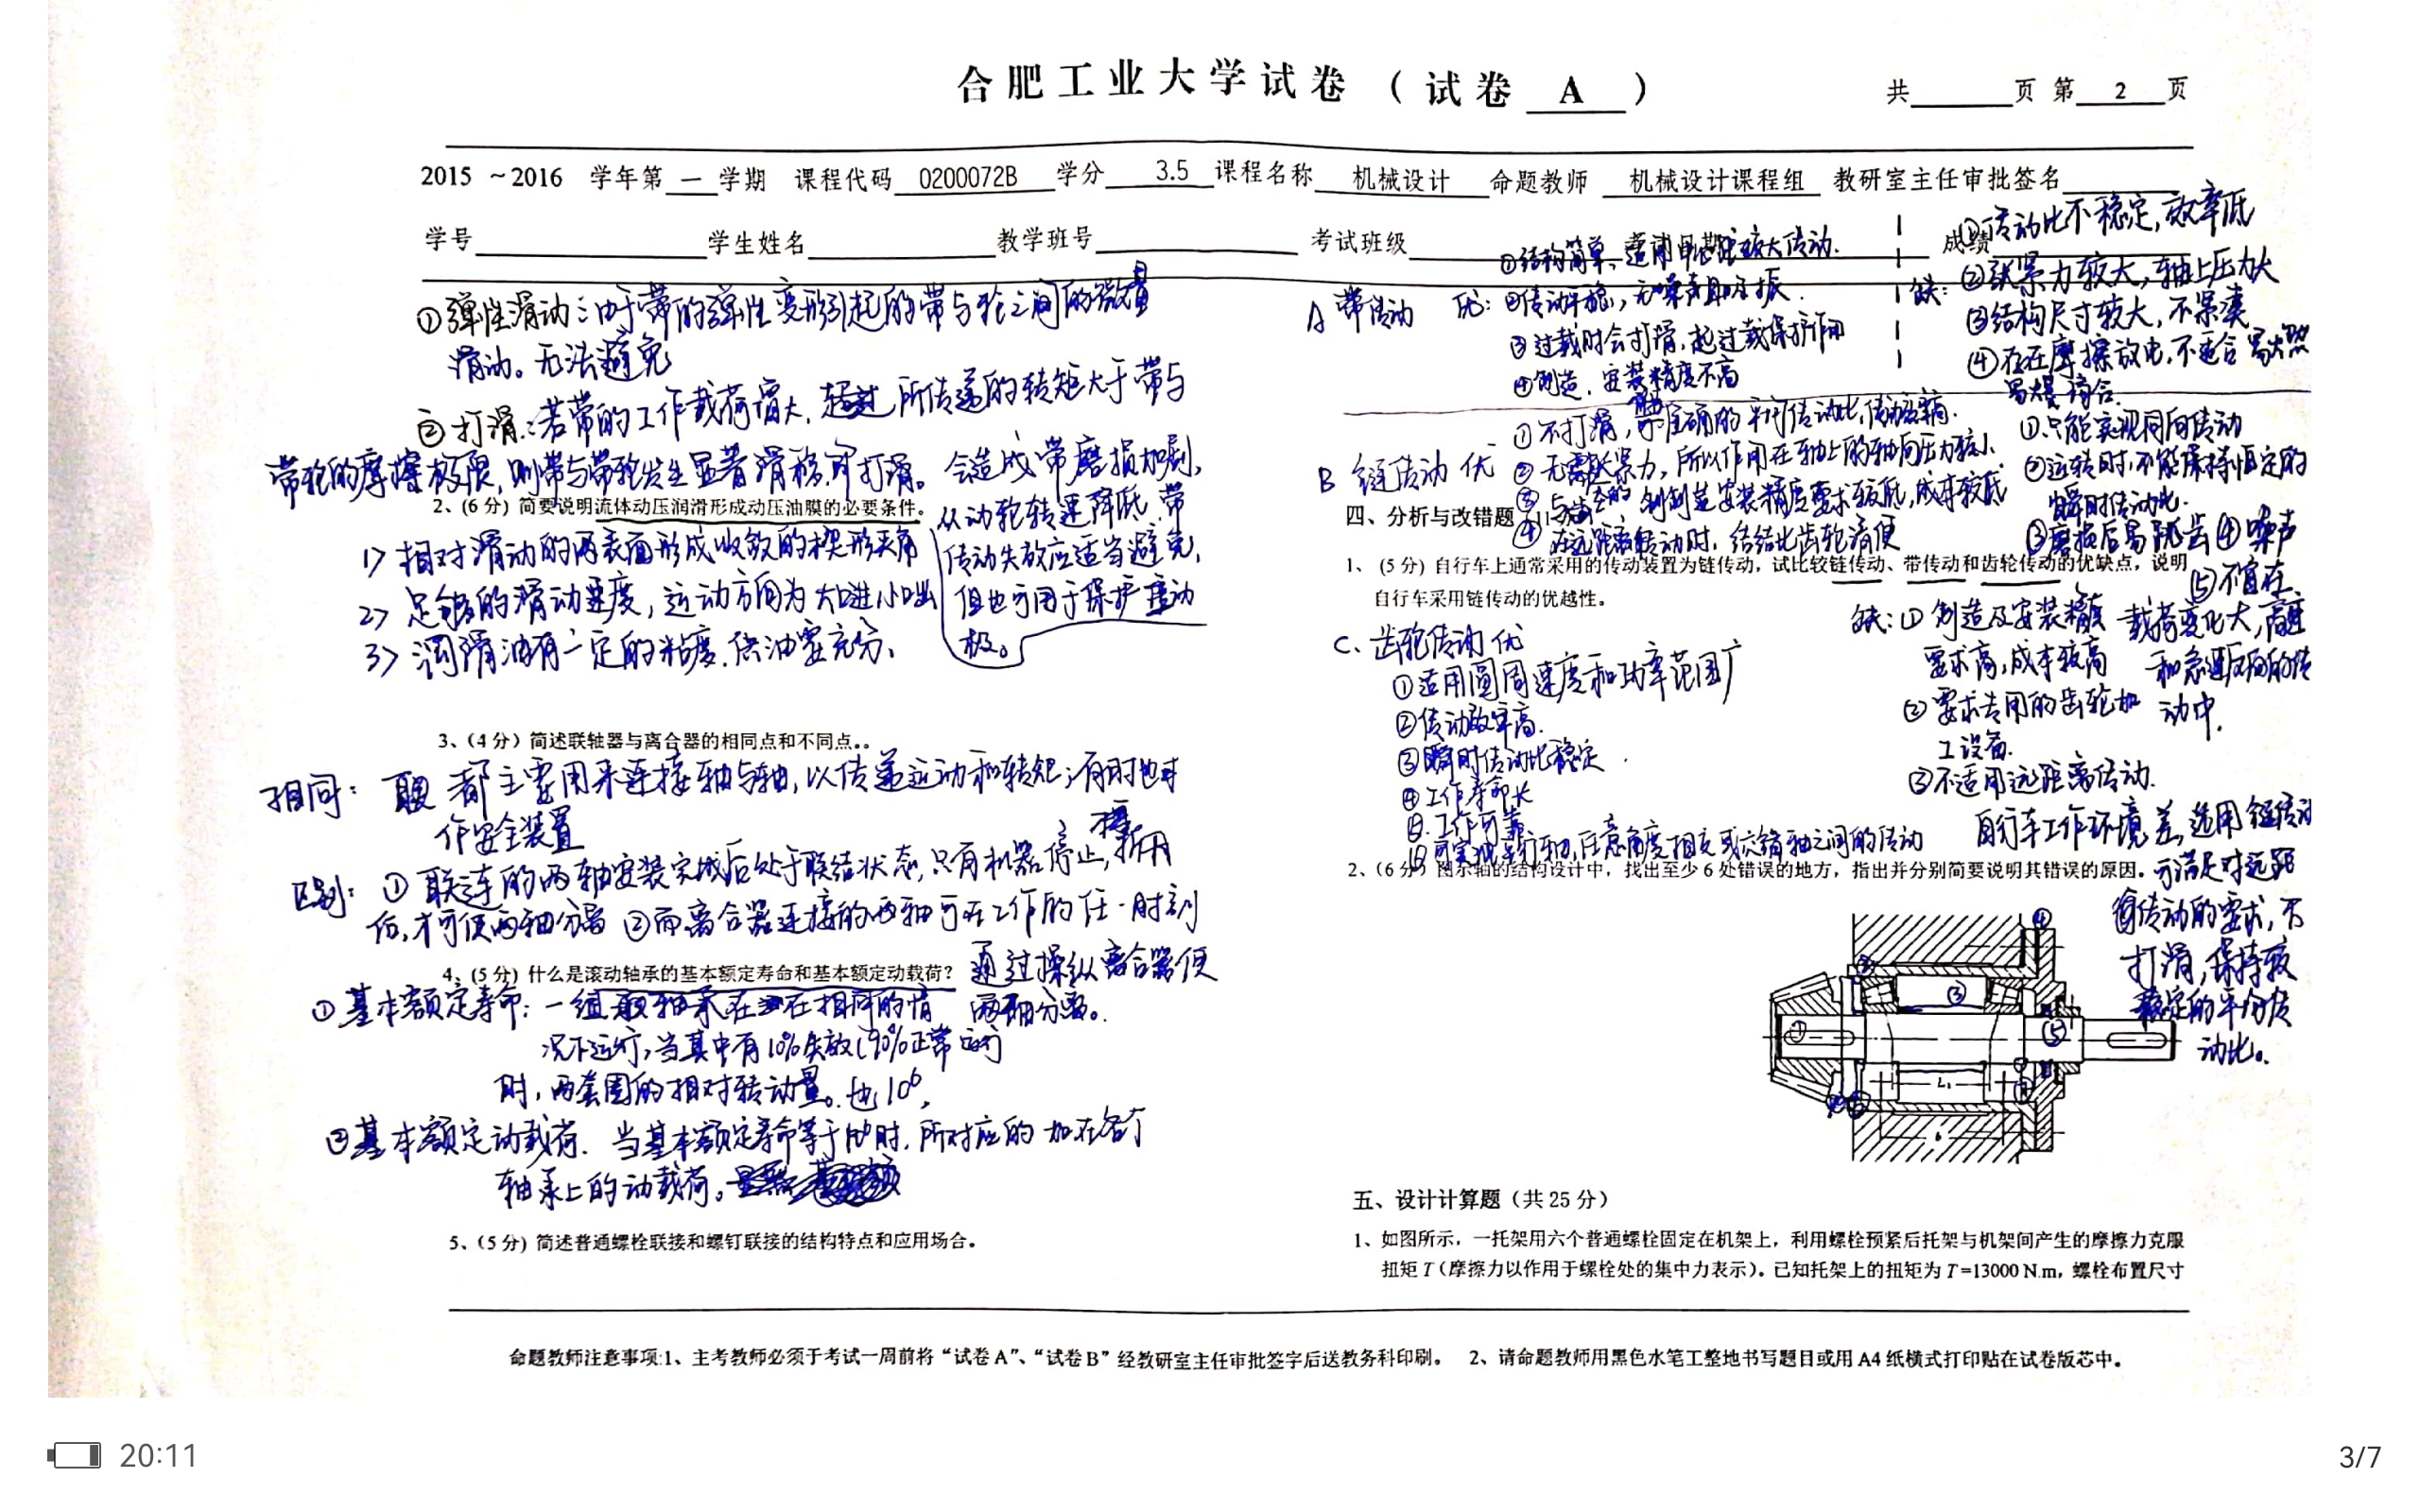 合肥工业大学试卷（试卷 A ）
共 页 第 2 页
2015 ~2016 学年第 一 学期 课程代码 0200072B 学分 3.5 课程名称 机械设计 命题教师 机械设计课程组 教研室主任审批签名
学号 学生姓名 教学班号 考试班级 成绩
①弹性滑动：由于带的弹性变形引起的带与轮之间的微量
滑动。无法避免
②打滑：若带的工作载荷增大，所传递的转矩大于带与
带轮的摩擦极限，则带与带轮发生显著滑移，即打滑。会造成带磨损加剧，
从动轮转速降低，带
传动失效应适当避免，
但也可用于保护重动
极。
2、(6 分) 简要说明流体动压润滑形成动压油膜的必要条件。
1> 相对滑动的两表面形成收敛的楔形夹角
2> 足够的滑动速度，运动方向为大口进小口出
3> 润滑油有一定的粘度，供油要充分、
3、（4 分）简述联轴器与离合器的相同点和不同点。.
相同： 都主要用来连接轴与轴，以传递运动和转矩；有时也可
作安全装置
区别：①联连的两轴安装完成后处于联结状态，只有机器停止，拆开
后，才可使两轴分离 ②而离合器连接的两轴可在工作的任一时刻
通过操纵离合器使
两轴分离。
4、(5 分) 什么是滚动轴承的基本额定寿命和基本额定动载荷？
①基本额定寿命：一组 轴承在 在相同的情
况下运行，当其中有10%失效(90%正常运行
时，两套圈的相对转动量。也10⁶,
②基本额定动载荷. 当基本额定寿命等于10⁶时，所对应的 加在各个
轴承上的动载荷。
5、(5 分) 简述普通螺栓联接和螺钉联接的结构特点和应用场合。
A 带传动 优：①结构简单、适用中心距较大传动.
②传动平稳，无噪音且吸振.
③过载时会打滑，起过载保护作用
④制造、安装精度不高
缺：①传动比不稳定，效率低
②张紧力较大，轴上压力大
③结构尺寸较大，不紧凑
④存在摩擦放电，不适合易燃
易爆场合.
B 链传动 优 ①不打滑，准确的平均传动比，
②无需张紧力，所以作用在轴上的轴向压力较小
③与 制造安装精度要求较低，成本较低
④在远距离转动时，结构比齿轮清便
①只能实现同向传动
②运转时，不能保持恒定的
瞬时传动比.
③磨损后易跳齿④噪声
⑤不宜在
载荷变化大，高速
和急速反向的传
动中.
四、分析与改错题
1、 (5 分) 自行车上通常采用的传动装置为链传动，试比较链传动、带传动和齿轮传动的优缺点，说明
自行车采用链传动的优越性。
C、齿轮传动 优
①适用圆周速度和功率范围广
②传动效率高.
③瞬时传动比稳定
④工作寿命长
⑤.工作可靠
⑥可实现平行轴，任意角度相交或交错轴之间的传动
缺：①制造及安装精度
要求高，成本较高
②要求专用的齿轮加
工设备.
③不适用远距离传动.
自行车工作环境差，选用链传动
可满足对远距
离传动的要求，不
打滑，保持较
稳定的平均传
动比。
2、(6 分) 图示轴的结构设计中，找出至少 6 处错误的地方，指出并分别简要说明其错误的原因。
① ③ ④ ⑤ L₁
五、设计计算题（共 25 分）
1、如图所示，一托架用六个普通螺栓固定在机架上，利用螺栓预紧后托架与机架间产生的摩擦力克服
扭矩 T（摩擦力以作用于螺栓处的集中力表示）。已知托架上的扭矩为 T=13000 N.m，螺栓布置尺寸
命题教师注意事项:1、主考教师必须于考试一周前将“试卷 A”、“试卷 B”经教研室主任审批签字后送教务科印刷。 2、请命题教师用黑色水笔工整地书写题目或用 A4 纸横式打印贴在试卷版芯中。
20:11
3/7